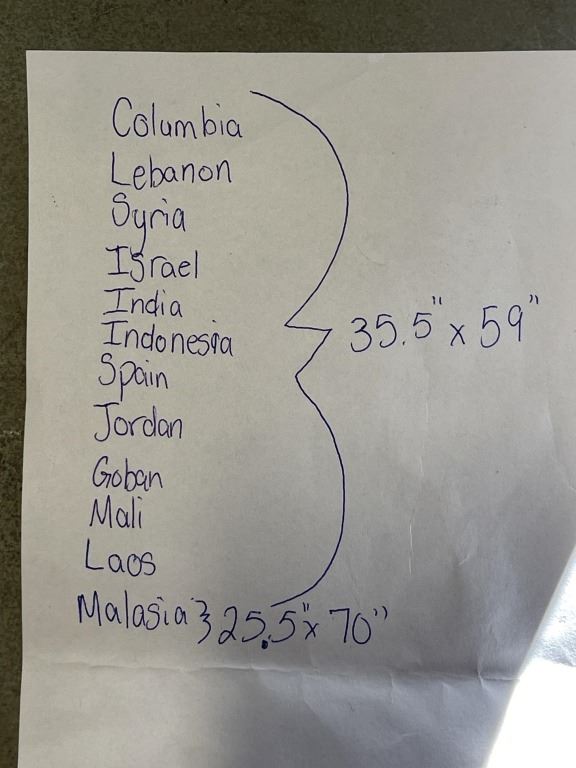 Columbia
Lebanon
Syria
Israel
India
Indonesia
Spain
Jordan
Goban
Mali
Laos
35.5" x 59"
Malasia } 25.5" x 70"